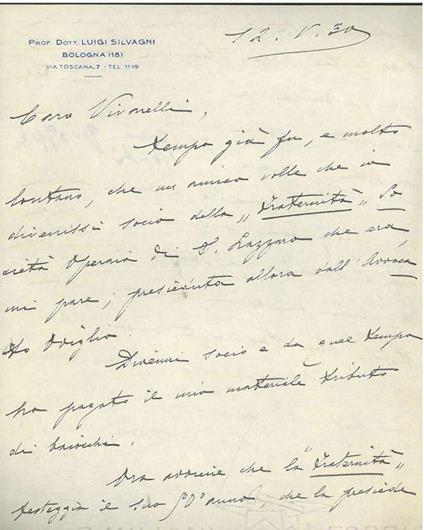 PROF. DOTT. LUIGI SILVAGNI
BOLOGNA (18)
VIA TOSCANA, 7 - TEL. 11-19
12. V. 30
Caro Vivarelli,
Tempo già fu, e molto
lontano, che un amico volle che io
divenissi socio della "Fraternità" So
cietà Operaia di S. Lazzaro che era,
mi pare, presieduta allora dall'Avvoca
to Oviglio.
Divenni socio e da quel tempo
ho pagato il mio materiale tributo
di baiocchi.
Ora avviene che la "Fraternità"
festeggia il suo 50° anno, che la presiede